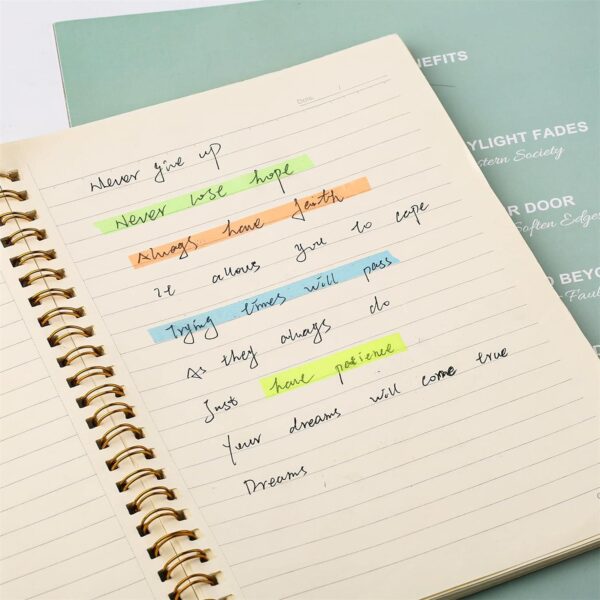 Date / /
Never give up
Never lose hope
Always have faith
It allows you to cope
Trying times will pass
As they always do
Just have patience
Your dreams will come true
Dreams
NEFITS
YLIGHT FADES
stern Society
R DOOR
Soften Edges
D BEYO
Faul